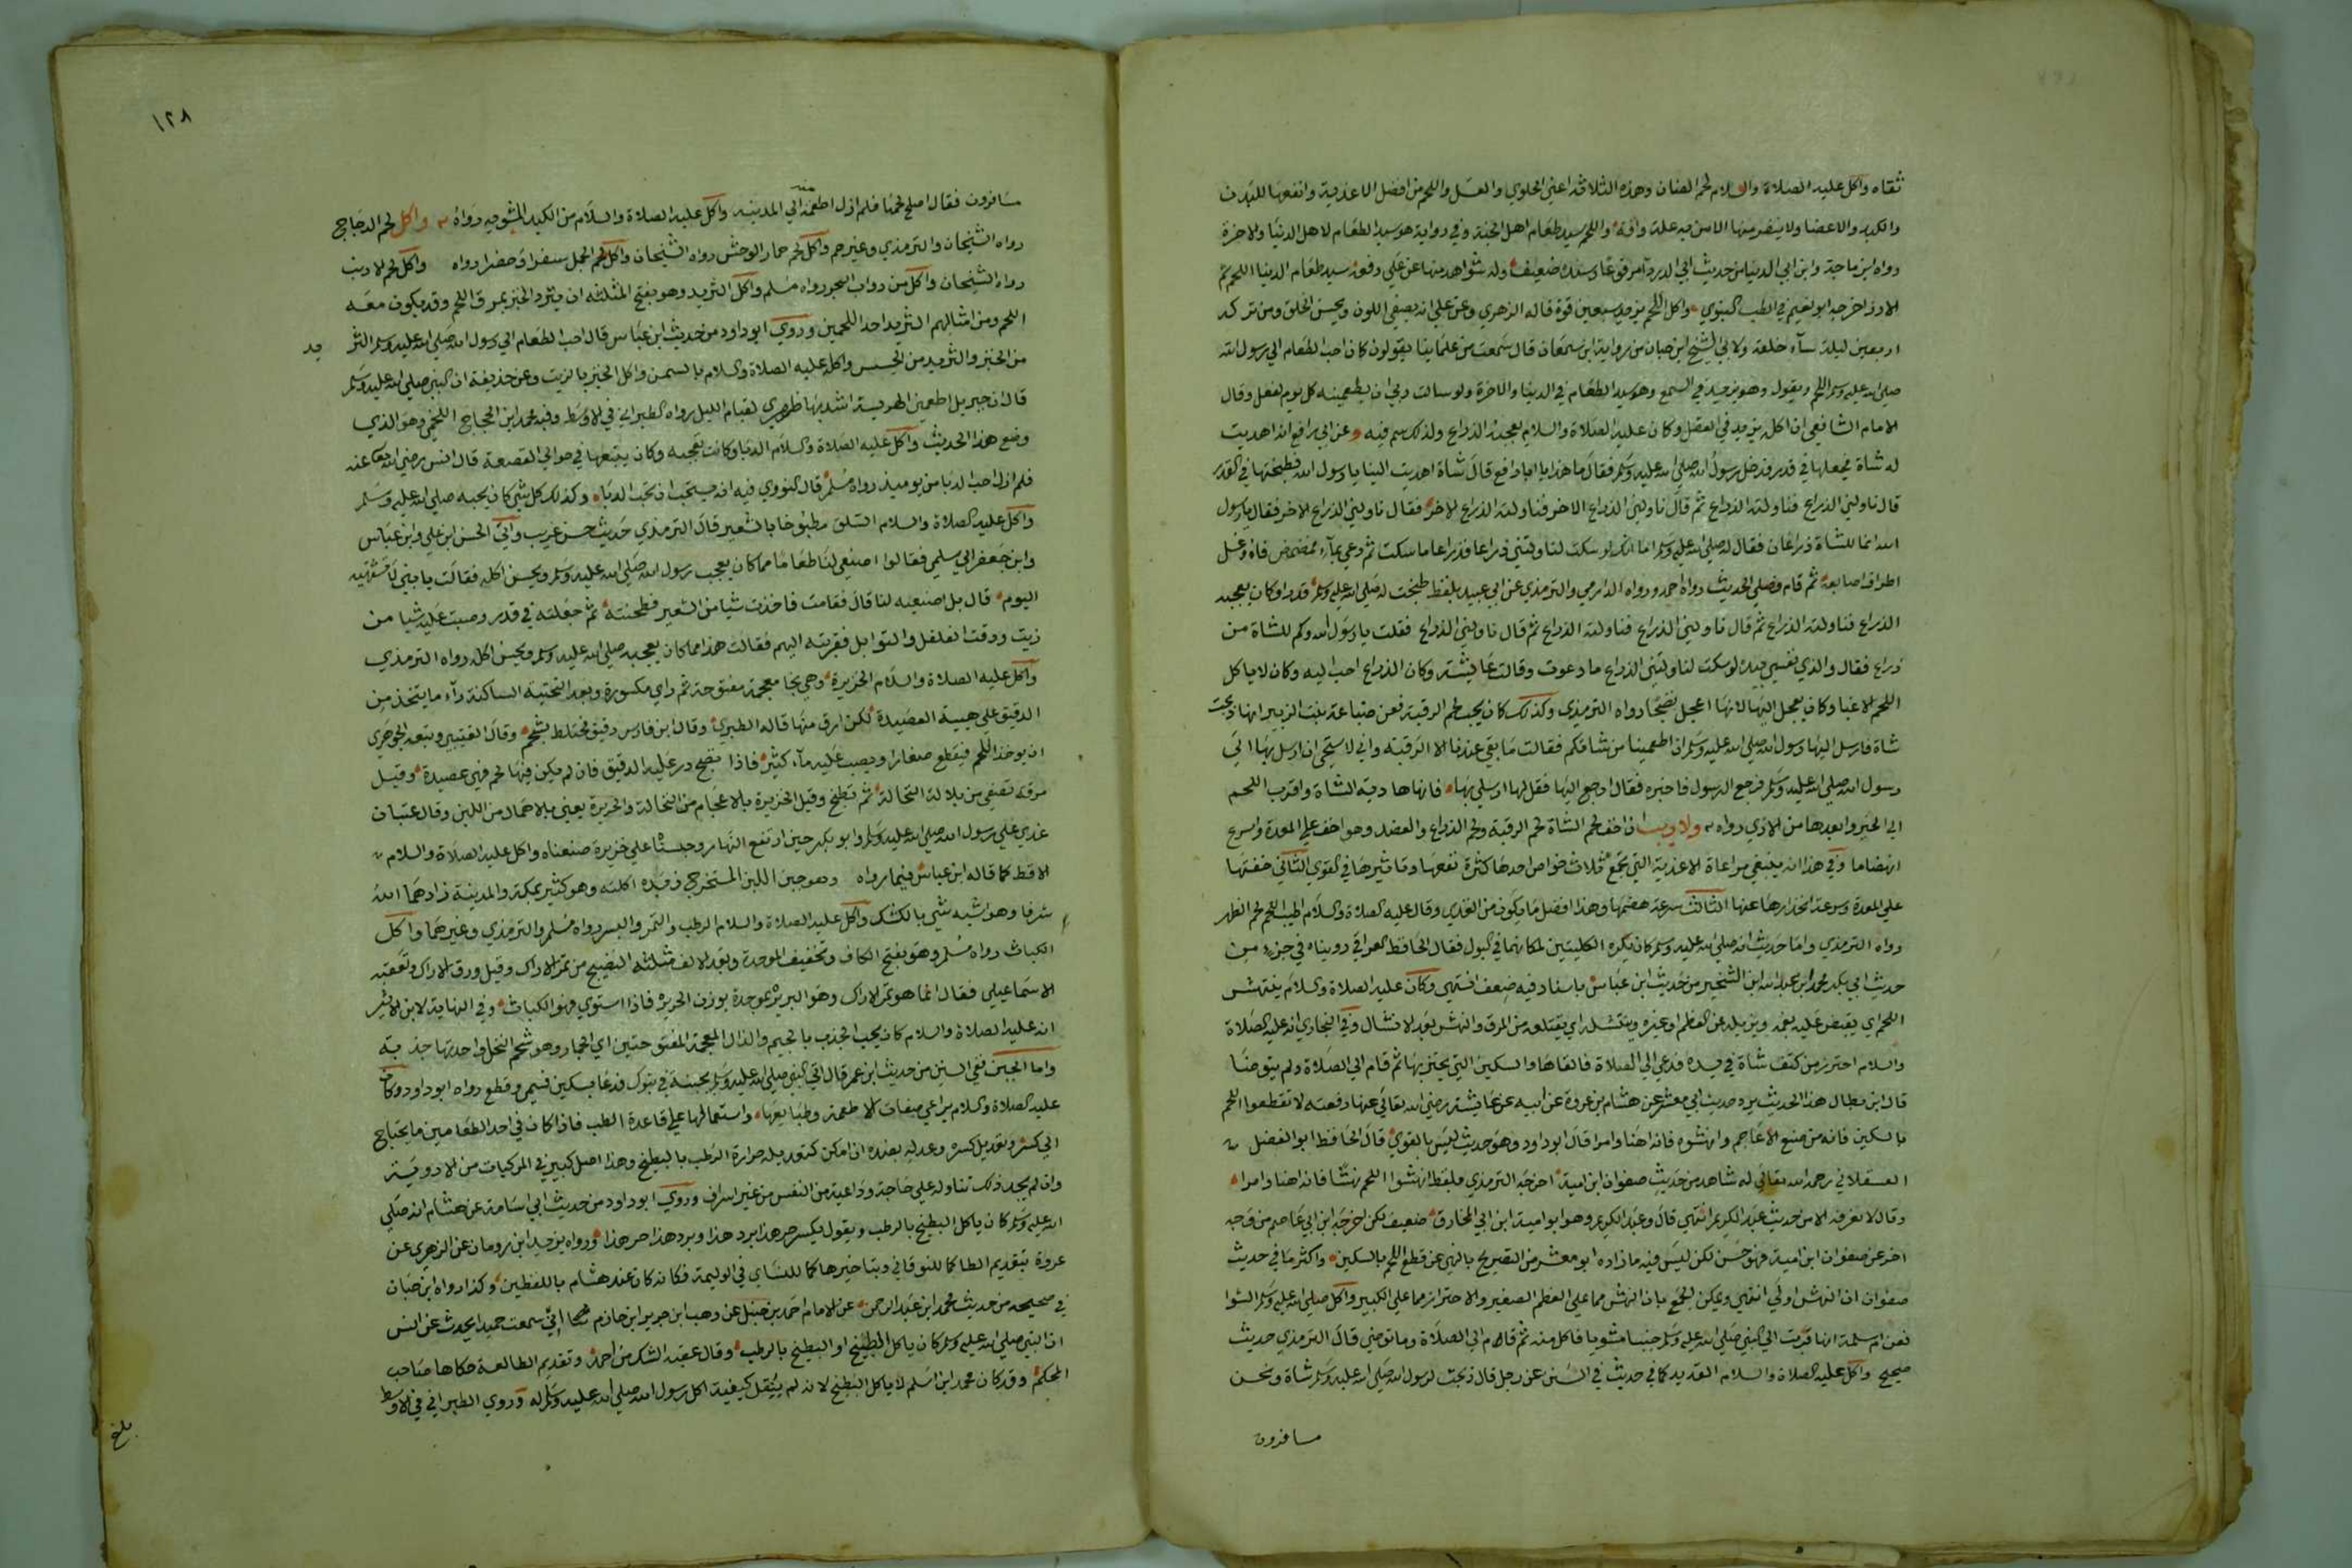 ثقاه واكل عليه الصلاة والسلام لحم الضان وهذه الثلاثة اعني الحلوي والعسل واللحم من افضل الاغذية وانفعها للبدن
والكبد والاعضا ولا ينفر منها الا من به علة وافة واللحم سيد طعام اهل الجنة وفي رواية هو سيد الطعام لاهل الدنيا والاخرة
رواه ابن ماجة وابن ابي الدنيا من حديث ابي الدرداء مرفوعا وسنده ضعيف وله شواهد منها عن علي رفعه سيد طعام الدنيا اللحم ثم
الارز اخرجه ابو نعيم في الطب النبوي واكل اللحم يزيد سبعين قوة قاله الزهري وعن علي انه يصفي اللون ويحسن الخلق ومن تركه
اربعين ليلة ساء خلقه ولابي الشيخ ابن حبان من رواية ابن سمعان قال سمعت من علمائنا يقولون كان احب الطعام الي رسول الله
صلى الله عليه وسلم اللحم ويقول وهو يزيد في السمع وهو سيد الطعام في الدنيا والاخرة ولو سالت ربي ان يطعمينه كل يوم لفعل وقال
الامام الشافعي ان اكله يزيد في العقل وكان عليه الصلاة والسلام يعجبه الذراع ولذلك سم فيه وعن ابي رافع انه اهديت
له شاة فجعلها في قدر فدخل رسول الله صلى الله عليه وسلم فقال ما هذا يا ابا رافع قال شاة اهديت الينا يا رسول الله فطبختها في القدر
قال ناولني الذراع فناولته الذراع ثم قال ناولني الذراع الاخر فناولته الذراع الاخر فقال ناولني الذراع الاخر فقال يا رسول
الله انما للشاة ذراعان فقال له صلى الله عليه وسلم اما انك لو سكت لناولتني ذراعا فذراعا ما سكت ثم دعي بماء فمضمض فاه وغسل
اطراف اصابعه ثم قام فصلي الحديث رواه احمد ورواه الدارمي والترمذي عن ابي عبيد بلفظ طبخت له صلى الله عليه وسلم قدرا وكان يعجبه
الذراع فناولته الذراع ثم قال ناولني الذراع فناولته الذراع ثم قال ناولني الذراع فقلت يا رسول الله وكم للشاة من
ذراع فقال والذي نفسي بيده لو سكت لناولتني الذراع ما دعوت وقالت عائشة وكان الذراع احب اليه وكان لا ياكل
اللحم الا غبا وكان يعجل اليها لانها اعجل نضجا رواه الترمذي وكذلك كان يحب لحم الرقبة فعن ضباعة بنت الزبير انها ذبحت
شاة فارسل اليها رسول الله صلى الله عليه وسلم ان اطعمينا من شاتكم فقالت ما بقي عندنا الا الرقبة واني لا ستحي ان ارسل بها الي
رسول الله صلى الله عليه وسلم فرجع الرسول فاخبره فقال ارجع اليها فقل لها ارسلي بها فانها هادية الشاة واقرب اللحم
الي الخير وابعدها من الاذي رواه ولا ريب ان اخف لحم الشاة لحم الرقبة ولحم الذراع والعضد وهو اخف علي المعدة واسرع
انهضاما وفي هذا انه ينبغي مراعاة الاغذية التي تجمع ثلاث خواص احدها كثرة نفعها وتاثيرها في القوي الثاني خفتها
علي المعدة وسرعة انحدارها عنها الثالث سرعة هضمها وهذا افضل ما يكون من الغذي وقال عليه الصلاة والسلام اطيب اللحم لحم الظهر
رواه الترمذي واما حديث انه صلى الله عليه وسلم كان يكره الكليتين لمكانهما في البول فقال الحافظ العراقي رويناه في جزء من
حديث ابي بكر محمد ابن عبد الله ابن الشخير من حديث ابن عباس باسناد فيه ضعف انتهي وكان عليه الصلاة والسلام ينتهش
اللحم اي يقبض عليه بفمه ويزيله عن العظم او غيره وينتشله اي يقتلعه من المرق والنهش بعد الانتشال وفي البخاري انه عليه الصلاة
والسلام احتز من كتف شاة في يده فدعي الي الصلاة فالقاها والسكين التي يحتز بها ثم قام الي الصلاة ولم يتوضا
قال ابن بطال هذا الحديث يرد حديث ابي معشر عن هشام بن عروة عن ابيه عن عائشة رضي الله تعالي عنها رفعته لا تقطعوا اللحم
بالسكين فانه من صنع الاعاجم وانهشوه فانه اهنا وامرا قال ابو داود وهو حديث ليس بالقوي قال الحافظ ابو الفضل
العسقلاني رحمه الله تعالي له شاهد من حديث صفوان ابن امية اخرجه الترمذي بلفظ انهشوا اللحم نهشا فانه اهنا وامرا
وقال لا نعرفه الا من حديث عبد الكريم انتهي قال وعبد الكريم وهو ابو امية ابن ابي المخارق ضعيف لكن اخرجه ابن ابي عاصم من وجه
اخر عن صفوان ابن امية فهو حسن لكن ليس فيه ما زاده ابو معشر من التصريح بالنهي عن قطع اللحم بالسكين واكثر ما في حديث
صفوان ان النهش اولي انتهي ويمكن الجمع بان النهش مما علي العظم الصغير والاحتزاز مما علي الكبير واكل صلى الله عليه وسلم الشوا
فعن ام سلمة انها قربت الي النبي صلى الله عليه وسلم جنبا مشويا فاكل منه ثم قام الي الصلاة وما توضي قال الترمذي حديث
صحيح واكل عليه الصلاة والسلام القديد كما في حديث في السنن عن رجل قال ذبحت لرسول الله صلى الله عليه وسلم شاة ونحن
مسافرون
١٢٨
مسافرون فقال اصلح لحمها فلم ازل اطعمه منه الي المدينة واكل عليه الصلاة والسلام من الكبد المشويه رواه واكل لحم الدجاج
رواه الشيخان والترمذي وغيرهم واكل لحم حمار الوحش رواه الشيخان واكل لحم الجمل سفرا وحضرا رواه واكل لحم الارنب
رواه الشيخان واكل من دواب البحر رواه مسلم واكل الثريد وهو بفتح المثلثة ان يثرد الخبز بمرق اللحم وقد يكون معه
اللحم ومن امثالهم الثريد احد اللحمين وروي ابو داود من حديث ابن عباس قال احب الطعام الي رسول الله صلى الله عليه وسلم الثر
يد
من الخبز والثريد من الحيس واكله عليه الصلاة والسلام بالسمن واكل الخبز بالزيت وعن حذيفة ان النبي صلى الله عليه وسلم
قال ان جبريل اطعمني الهريسة اشد بها ظهري لقيام الليل رواه الطبراني في الاوسط وفيه محمد ابن الحجاج اللخمي وهو الذي
وضع هذا الحديث واكل عليه الصلاة والسلام الدبا وكانت تعجبه وكان يتبعها في حوالي القصعة قال انس رضي الله تعالي عنه
فلم ازل احب الدبا من يوميذ رواه مسلم قال النووي فيه انه يستحب ان يحب الدباء وكذلك كل شي كان يحبه صلى الله عليه وسلم
واكل عليه الصلاة والسلام السلق مطبوخا بالشعير قال الترمذي حديث حسن غريب واتي الحسن ابن علي وابن عباس
وابن جعفر الي سلمي فقالوا اصنعي لنا طعاما مما كان يعجب رسول الله صلى الله عليه وسلم ويحسن اكله فقالت يا بني لا تشتهيه
اليوم قال بل اصنعيه لنا قال فقامت فاخذت شيا من الشعير فطحنته ثم جعلته في قدر وصبت عليه شيا من
زيت ودقت الفلفل والتوابل فقربته اليهم فقالت هذا مما كان يعجبه صلى الله عليه وسلم ويحسن اكله رواه الترمذي
واكل عليه الصلاة والسلام الخزيرة وهي بخا معجمة مفتوحة ثم زاي مكسورة وبعد التحتية الساكنة راء ما يتخذ من
الدقيق علي هيية العصيدة لكن ارق منها قاله الطبري وقال ابن فارس دقيق مختلط بشحم وقال القتيبي وتبعه الجوهري
ان يوخذ اللحم فيقطع صغارا ويصب عليه ماء كثير فاذا نضج ذر عليه الدقيق فان لم يكن فيها لحم فهي عصيدة وقيل
مرقة تصفي من بلالة النخالة ثم تطبخ وقيل الخزيرة بالاعجام من النخالة والحريرة يعني بالاهمال من اللبن وقال عتبان
غدي علي رسول الله صلى الله عليه وسلم وابو بكر حين ارتفع النهار وحبستا علي خزيرة صنعناه واكل عليه الصلاة والسلام
الاقط كما قاله ابن عباس فيما رواه وهو جبن اللبن المستخرج زبده اكلته وهو كثير بمكة والمدينة زادهما الله
شرفا وهو اشبه شي بالكشك واكل عليه الصلاة والسلام الرطب والتمر والبسر رواه مسلم والترمذي وغيرهما واكل
الكباث رواه مسلم وهو بفتح الكاف وتخفيف الموحدة وبعد الالف مثلثة النضيج من ثمر الاراك وقيل ورق الاراك وتعقبه
الاسماعيلي فقال انما هو ثمر الاراك وهو البرير بموحدة بوزن الحرير فاذا استوي فهو الكباث وفي النهاية لابن الاثير
انه عليه الصلاة والسلام كان يحب الجذب بالجيم والذال المعجمة المفتوحتين اي الجمار وهو شحم النخل واحدتها جذبة
واما الجبن ففي السنن من حديث ابن عمر قال اتي النبي صلى الله عليه وسلم بجبنة في تبوك فدعا بسكين فسمي وقطع رواه ابو داود وكان
عليه الصلاة والسلام يراعي صفات الاطعمة وطبايعها واستعمالها علي قاعدة الطب فاذا كان في احد الطعامين ما يحتاج
الي كسر وتعديل كسره وعدله بضده ان امكن كتعديله حرارة الرطب بالبطيخ وهذا اصل كبير في المركبات من الادوية
وان لم يجد ذلك تناوله علي حاجة وداعية من النفس من غير اسراف وروي ابو داود من حديث ابي اسامة عن هشام انه صلي
الله عليه وسلم كان ياكل البطيخ بالرطب ويقول يكسر حر هذا برد هذا وبرد هذا حر هذا ورواه يزيد ابن رومان عن الزهري عن
عروة بتقديم الطا كما للنوقاني وبتاخيرها كما للنساي في الوليمة فكانه كان عند هشام باللفظين وكذا رواه ابن حبان
في صحيحه من حديث محمد ابن عبد الرحمن عن الامام احمد بن حنبل عن وهب ابن جرير ابن حازم انى سمعت حميدا يحدث عن انس
ان النبي صلى الله عليه وسلم كان ياكل الطبيخ او البطيخ بالرطب وقال عقبه الشك من احمد وتقديم الطا لغة حكاها صاحب
المحكم وقد كان محمد ابن اسلم لا ياكل البطيخ لانه لم ينقل كيفية اكل رسول الله صلى الله عليه وسلم له وروي الطبراني في الاوسط
بلغ